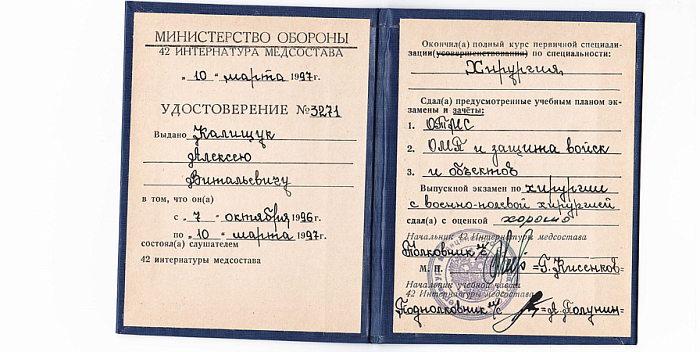 МИНИСТЕРСТВО ОБОРОНЫ
42 ИНТЕРНАТУРА МЕДСОСТАВА
„ 10 “ марта 1997г.
УДОСТОВЕРЕНИЕ №3271
Выдано Калищук
Алексею
Витальевичу
в том, что он(а)
с „ 7 “ октября 1996г.
по „ 10 “ марта 1997г.
состоял(а) слушателем
42 интернатуры медсостава
Окончил(а) полный курс первичной специали-
зации(усовершенствования) по специальности:
Хирургия
Сдал(а) предусмотренные учебным планом эк-
замены и зачёты:
1. ОТМС
2. ОМП и защита войск
3. и объектов
Выпускной экзамен по хирургии
с военно-полевой хирургией
сдал(а) с оценкой хорошо
Начальник 42 Интернатуры медсостава
Полковник м/с
М. П. =Г. Кисенков=
Начальник учебной части
42 Интернатуры медсостава
Подполковник м/с =А. Полунин=